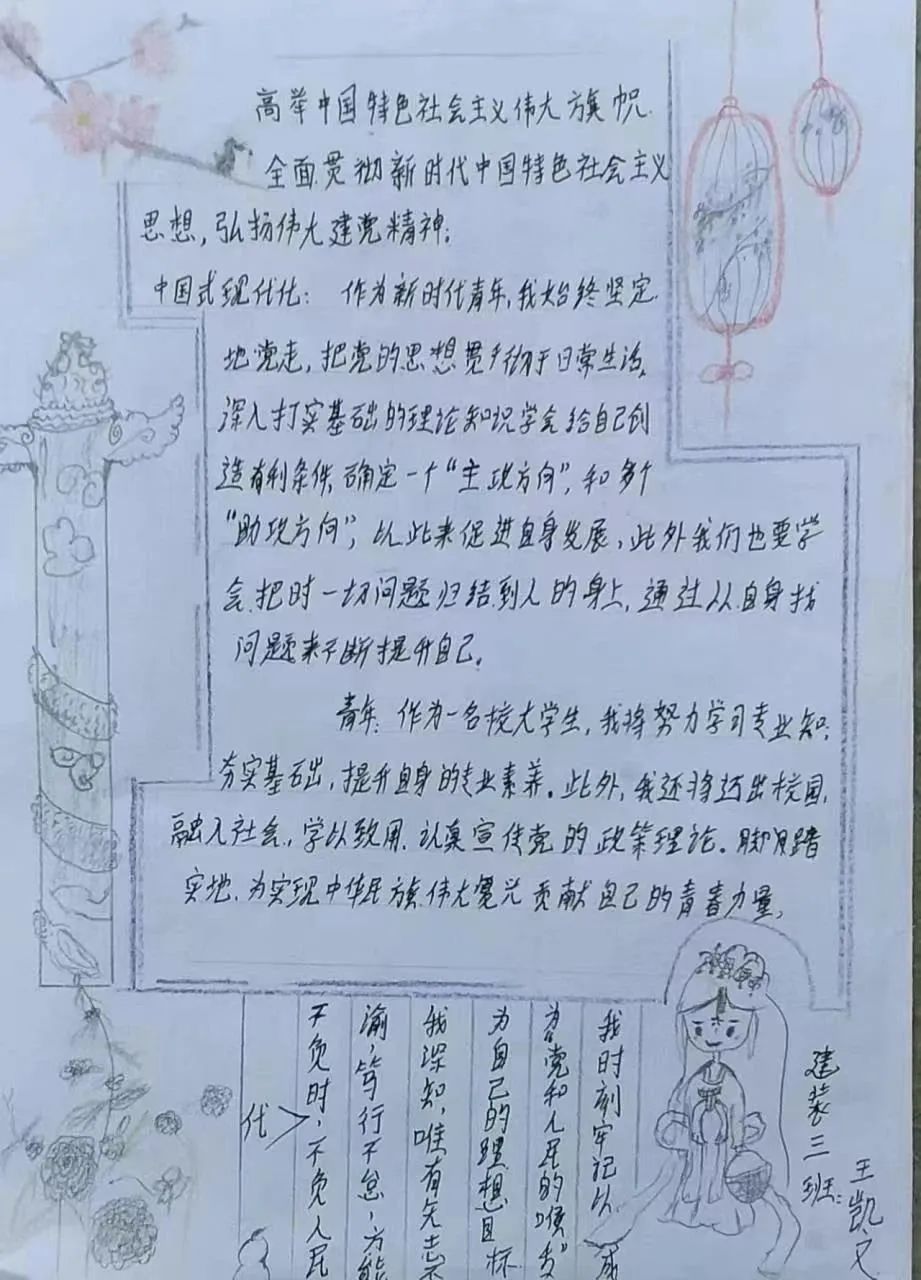 高举中国特色社会主义伟大旗帜
全面贯彻新时代中国特色社会主义
思想，弘扬伟大建党精神；
中国式现代化：作为新时代青年，我始终坚定
地党走，把党的思想贯彻于日常生活，
深入打实基础的理论知识学会给自己创
造有利条件，确定一个“主攻方向”，和多个
“助攻方向”，以此来促进自身发展，此外我们也要学
会把时一切问题归结到人的身上，通过从自身找
问题来不断提升自己。
青年：作为一名校大学生，我将努力学习专业知，
夯实基础，提升自身的专业素养。此外，我还将迈出校园，
融入社会，学以致用，认真宣传党的政策理论。脚踏
实地，为实现中华民族伟大复兴贡献自己的青春力量，
我时刻牢记以“成
为党和人民的喉舌”
为自己的理想目标
我深知，唯有矢志不
渝，笃行不怠，方能
不负时，不负人民
代
建装三班：王凯文